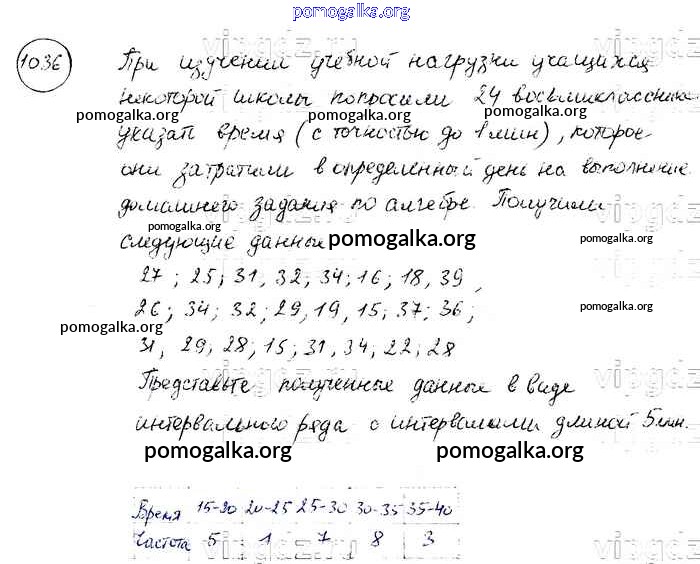 pomogalka.org
1036
При изучении учебной нагрузки учащихся
некоторой школы попросили 24 восьмиклассника
pomogalka.org pomogalka.org pomogalka.org
указать время (с точностью до 1 мин), которое
они затратили в определенный день на выполнение
домашнего задания по алгебре. Получили
pomogalka.org
следующие данные
pomogalka.org
27; 25; 31, 32; 34; 16; 18, 39,
26; 34; 32; 29, 19, 15; 37; 36;
pomogalka.org
pomogalka.org
31, 29; 28; 15; 31, 34; 22; 28
Представьте полученные данные в виде
интервального ряда с интервалами длиной 5 мин.
pomogalka.org pomogalka.org
Время 15-20 20-25 25-30 30-35 35-40
Частота 5 1 7 8 3